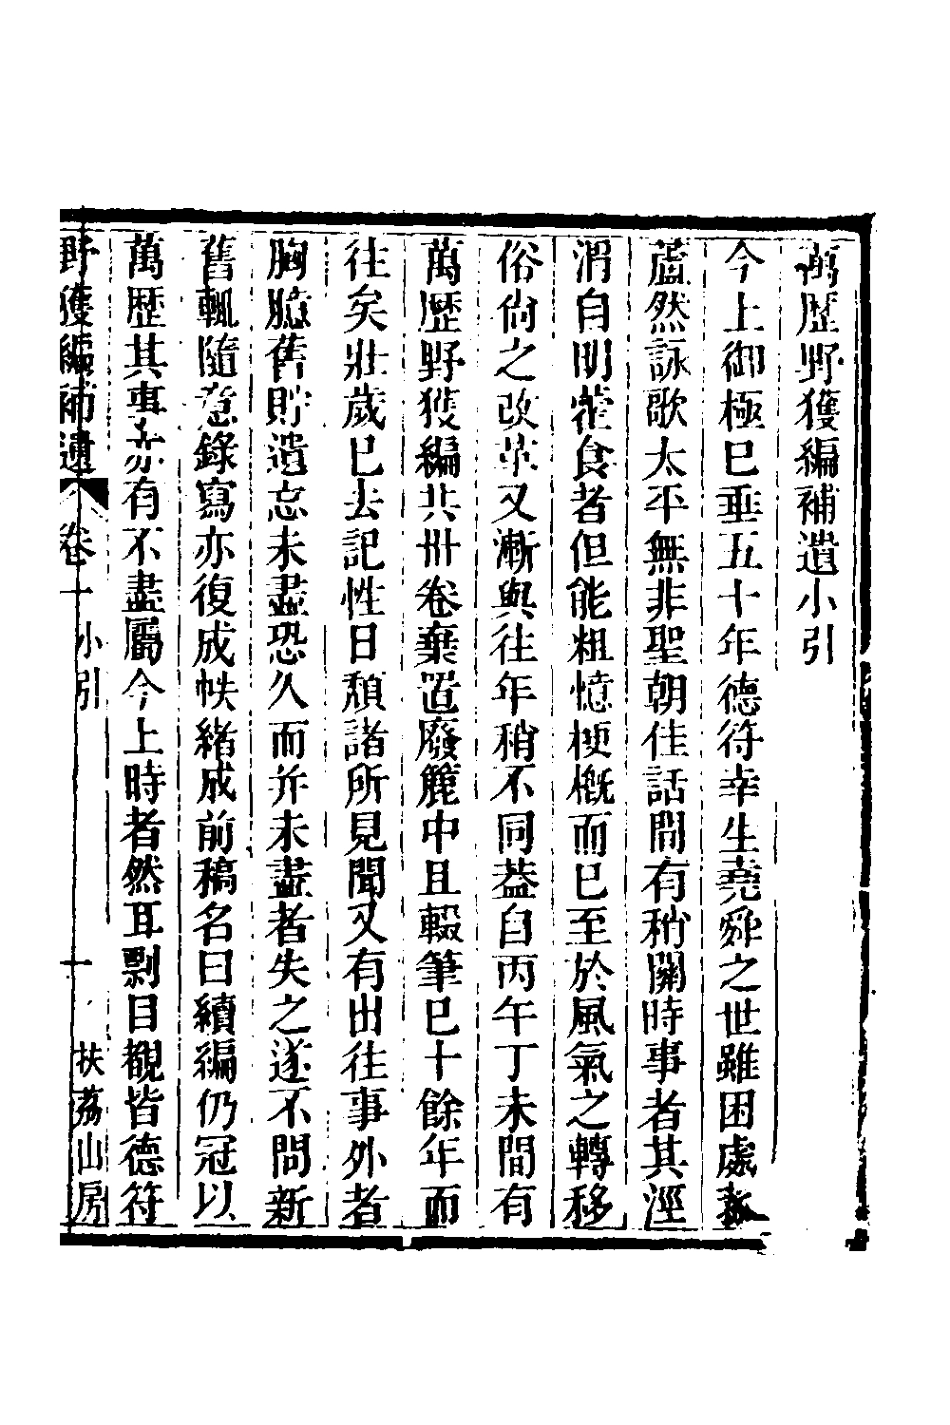 萬歴野獲編補遺小引
今上御極已垂五十年德符幸生堯舜之世雖困處
蘆然詠歌太平無非聖朝佳話間有稍關時事者其涇
渭自明藿食者但能粗憶梗概而已至於風氣之轉移
俗尙之改革又漸與往年稍不同葢自丙午丁未間有
萬歴野獲編共卅卷棄置廢簏中且輟筆已十餘年而
往矣壯歲已去記性日頹諸所見聞又有出往事外者
胸臆舊貯遺忘未盡恐久而并未盡者失之遂不問新
舊輒隨意錄寫亦復成帙緒成前稿名曰續編仍冠以
萬歴其事亦有不盡屬今上時者然耳剽目覩皆德符
野獲編補遺 卷一 小引 一 扶荔山房